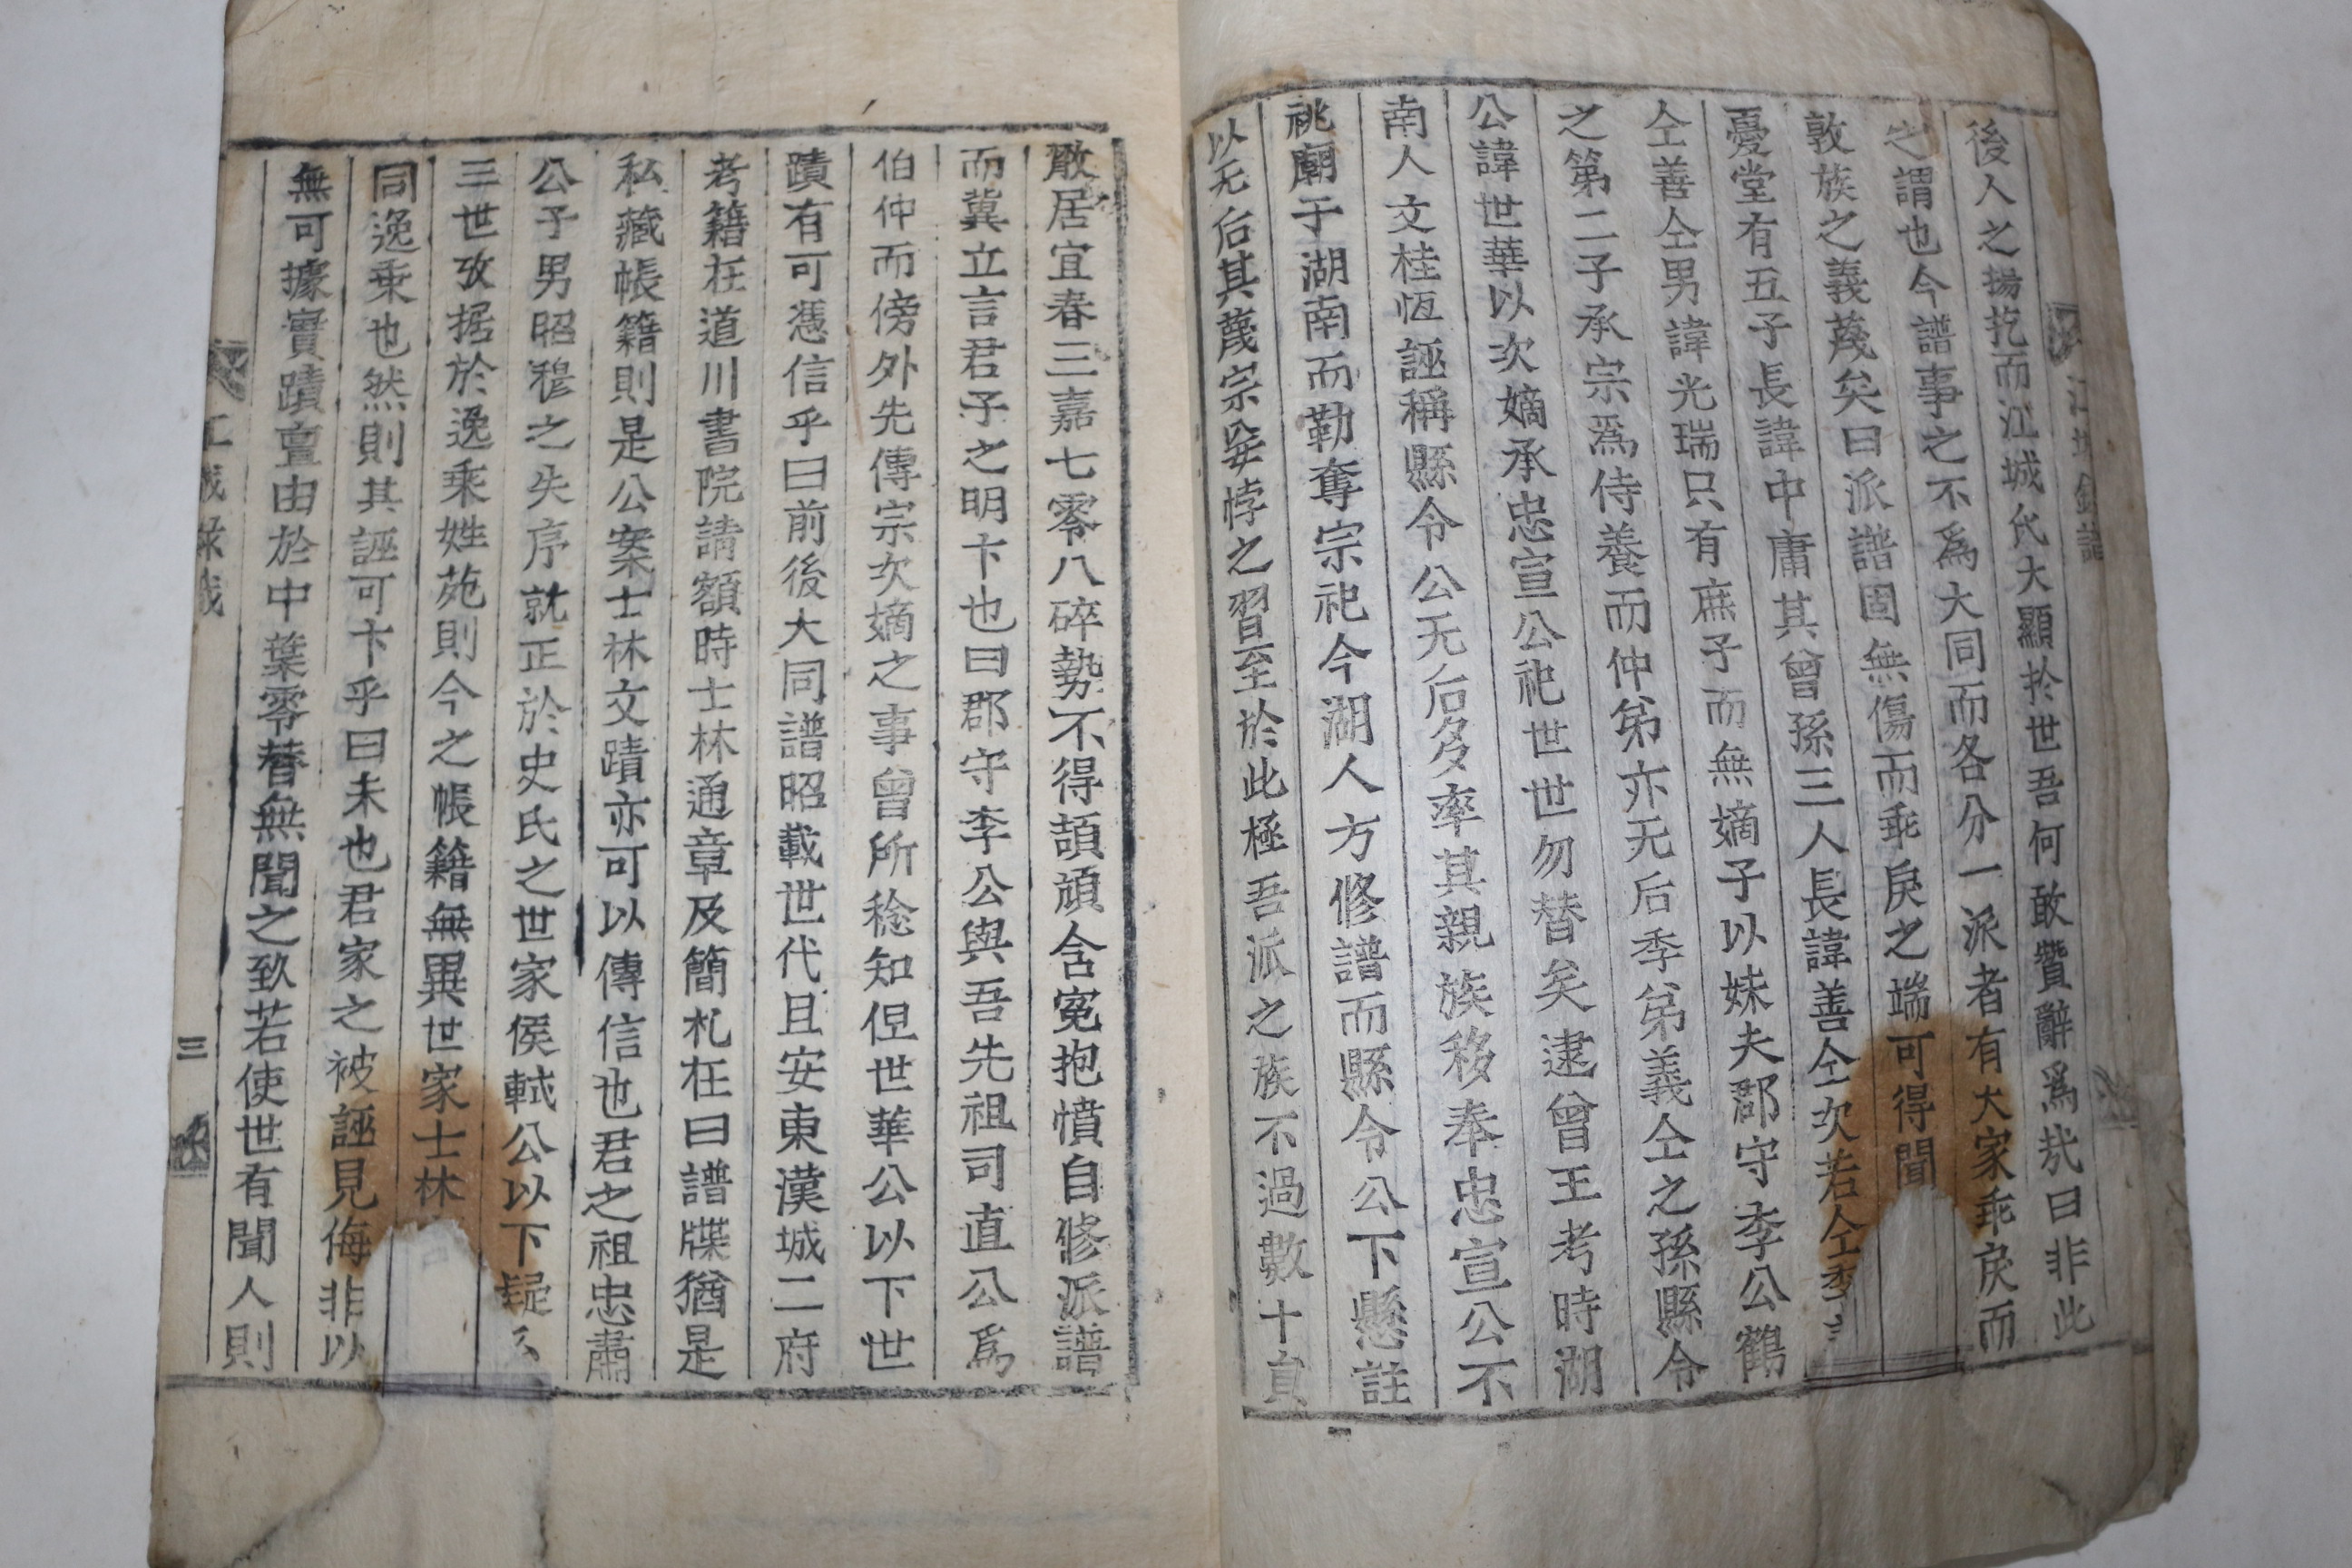 後人之揚扢而江城氏大顯於世吾何敢贊辭爲㢤曰非此
之謂也今譜事之不爲大同而各分一派者有大家乖戾而
敦族之義蔑矣曰派譜固無傷而乖戾之端可得聞
憂堂有五子長諱中庸其曾孫三人長諱善仝次若仝季
仝善仝男諱光瑞只有庶子而無嫡子以妹夫郡守李公鶴
之第二子承宗爲侍養而仲弟亦无后季弟義仝之孫縣令
公諱世華以次嫡承忠宣公祀世世勿替矣逮曾王考時湖
南人文桂恆誣稱縣令公无后多率其親族移奉忠宣公不
祧廟于湖南而勒奪宗祀今湖人方修譜而縣令公下懸註
以无后其蔑宗妄悖之習至於此極吾派之族不過數十員
散居宜春三嘉七零八碎勢不得頡頏含冤抱憤自修派譜
而冀立言君子之明卞也曰郡守李公與吾先祖司直公爲
伯仲而傍外先傳宗次嫡之事曾所稔知但世華公以下世
蹟有可憑信乎曰前後大同譜昭載世代且安東漢城二府
考籍在道川書院請額時士林通章及簡札在曰譜牒猶是
私藏帳籍則是公案士林文蹟亦可以傳信也君之祖忠肅
公子男昭穆之失序就正於史氏之世家侯軾公以下疑
三世攷据於逸乘姓苑則今之帳籍無異世家士林
同逸乗也然則其誣可卞乎曰未也君家之被誣見侮非以
無可據實蹟亶由於中葉零替無聞之致若使世有聞人則
三